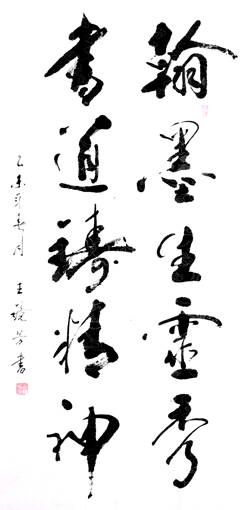 翰墨生靈秀
書道鑄精神
乙未年春月 王 芳書